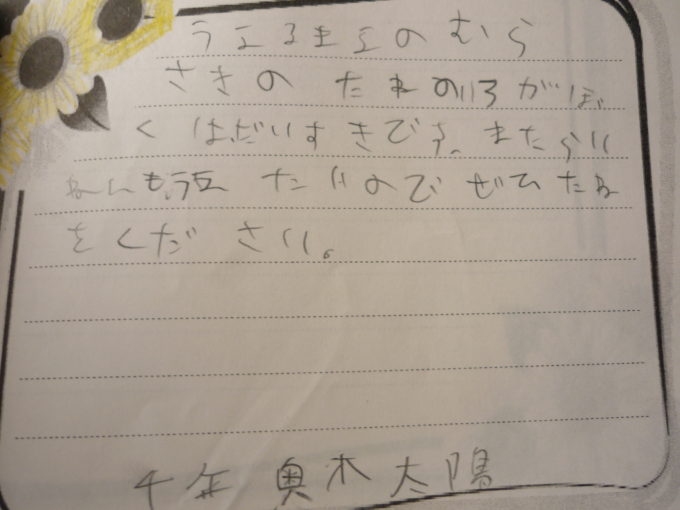 うえるまえのむら
さきの たねのいろがぼ
くはだいすきです。またらい
ねんもうえ たいのでぜひたね
をくだ さい。
千年 奥木太陽